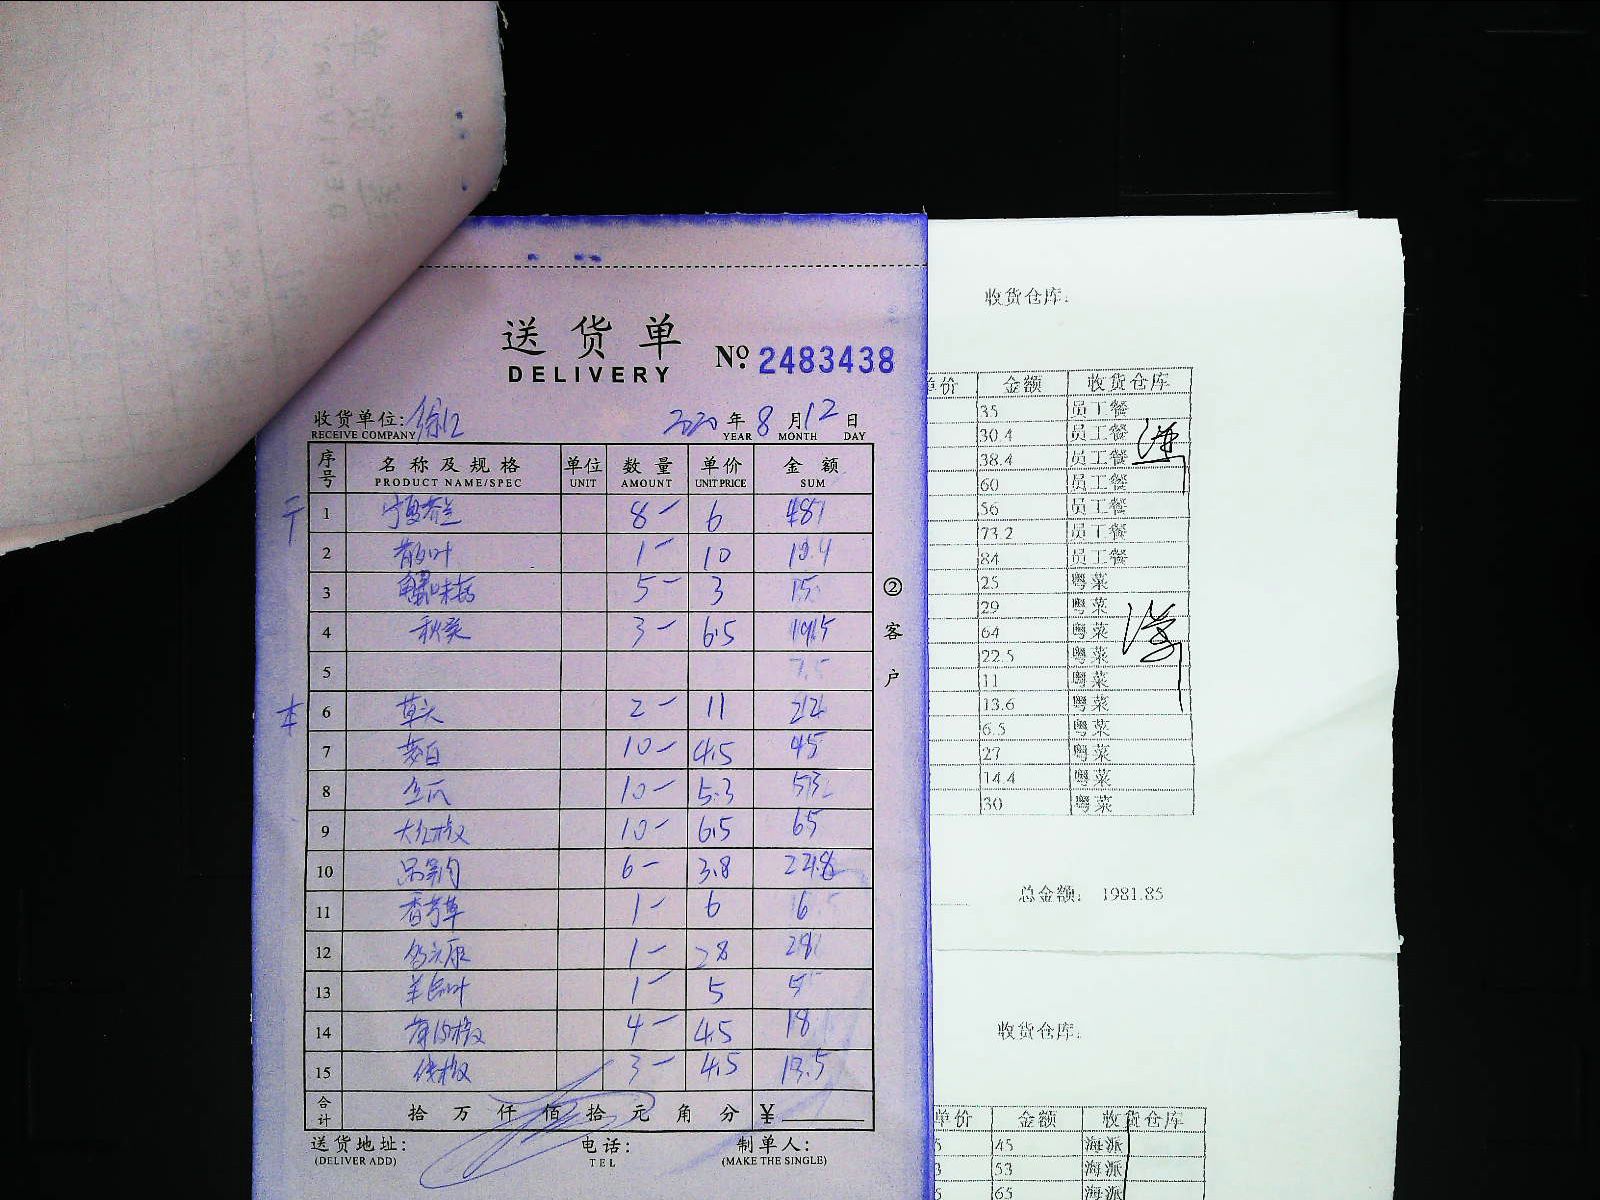 送货单
DELIVERY
№ 2483438
收货单位: 徐汇 2020 年 8 月 12 日
RECEIVE COMPANY YEAR MONTH DAY
序号 名称及规格 单位 数量 单价 金额
PRODUCT NAME/SPEC UNIT AMOUNT UNIT PRICE SUM
1 8- 6 48
2 1- 10
3 蟹味菇 5- 3 15
4 秋葵 3- 6.5 19.5
5
本 6 草头 2- 11 22
7 茭白 10- 4.5 45
8 丝瓜 10- 5.3 53
9 大红椒 10- 6.5 65
10 6- 3.8 22.8
11 香茅草 1- 6 6
12 1- 28 28
13 1- 5 5
14 4- 4.5 18
15 3- 4.5 13.5
合计 拾万仟佰拾元角分 ¥
送货地址: 电话: 制单人:
(DELIVER ADD) TEL (MAKE THE SINGLE)
②客户
收货仓库:
单价 金额 收货仓库
35 员工餐
30.4 员工餐
38.4 员工餐
60 员工餐
56 员工餐
73.2 员工餐
84 员工餐
25 粤菜
29 粤菜
64 粤菜
22.5 粤菜
11 粤菜
13.6 粤菜
6.5 粤菜
27 粤菜
14.4 粤菜
30 粤菜
总金额: 1981.85
收货仓库:
单价 金额 收货仓库
5 45 海派
3 53 海派
5 65 海派